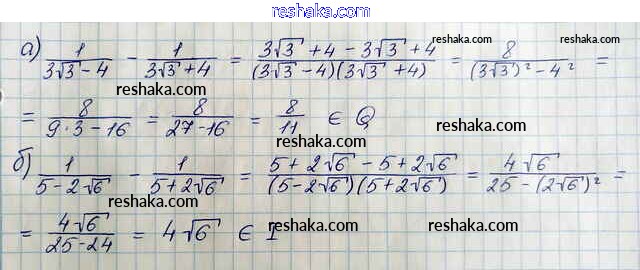 reshaka.com
а) 1/(3√3 - 4) - 1/(3√3 + 4) = (3√3 + 4 - 3√3 + 4)/((3√3 - 4)(3√3 + 4)) = 8/((3√3)² - 4²) =
reshaka.com reshaka.com
= 8/(9·3 - 16) = 8/(27 - 16) = 8/11 ∈ Q
reshaka.com reshaka.com
reshaka.com
б) 1/(5 - 2√6) - 1/(5 + 2√6) = (5 + 2√6 - 5 + 2√6)/((5 - 2√6)(5 + 2√6)) = 4√6/(25 - (2√6)²) =
reshaka.com reshaka.com
= 4√6/(25 - 24) = 4√6 ∈ I
reshaka.com reshaka.com
reshaka.com